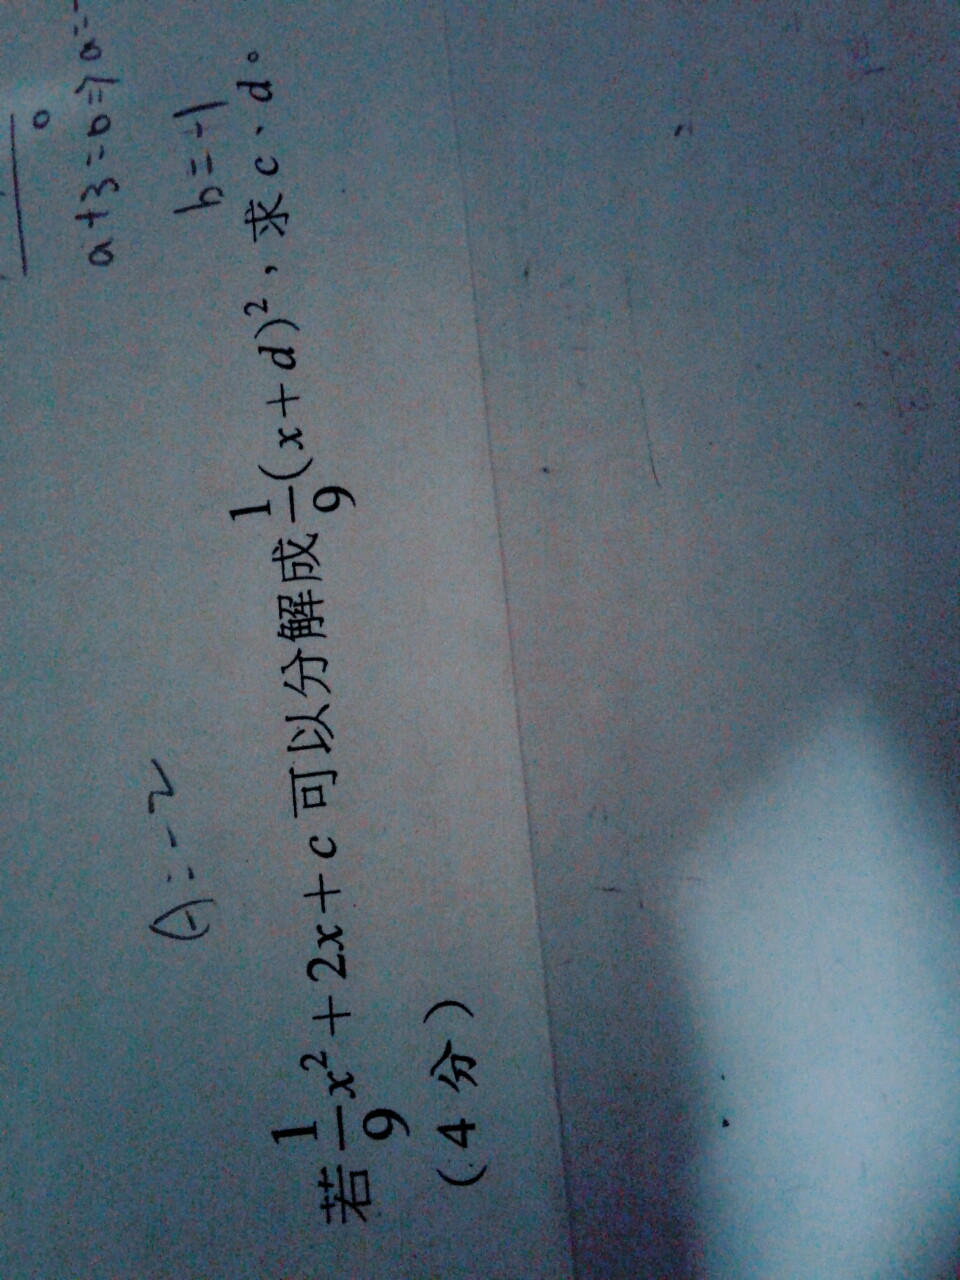 a+3=b⇒a=-
b=-1
A=-2
若\frac{1}{9}x²+2x+c可以分解成\frac{1}{9}(x+d)²，求c、d。
（4分）